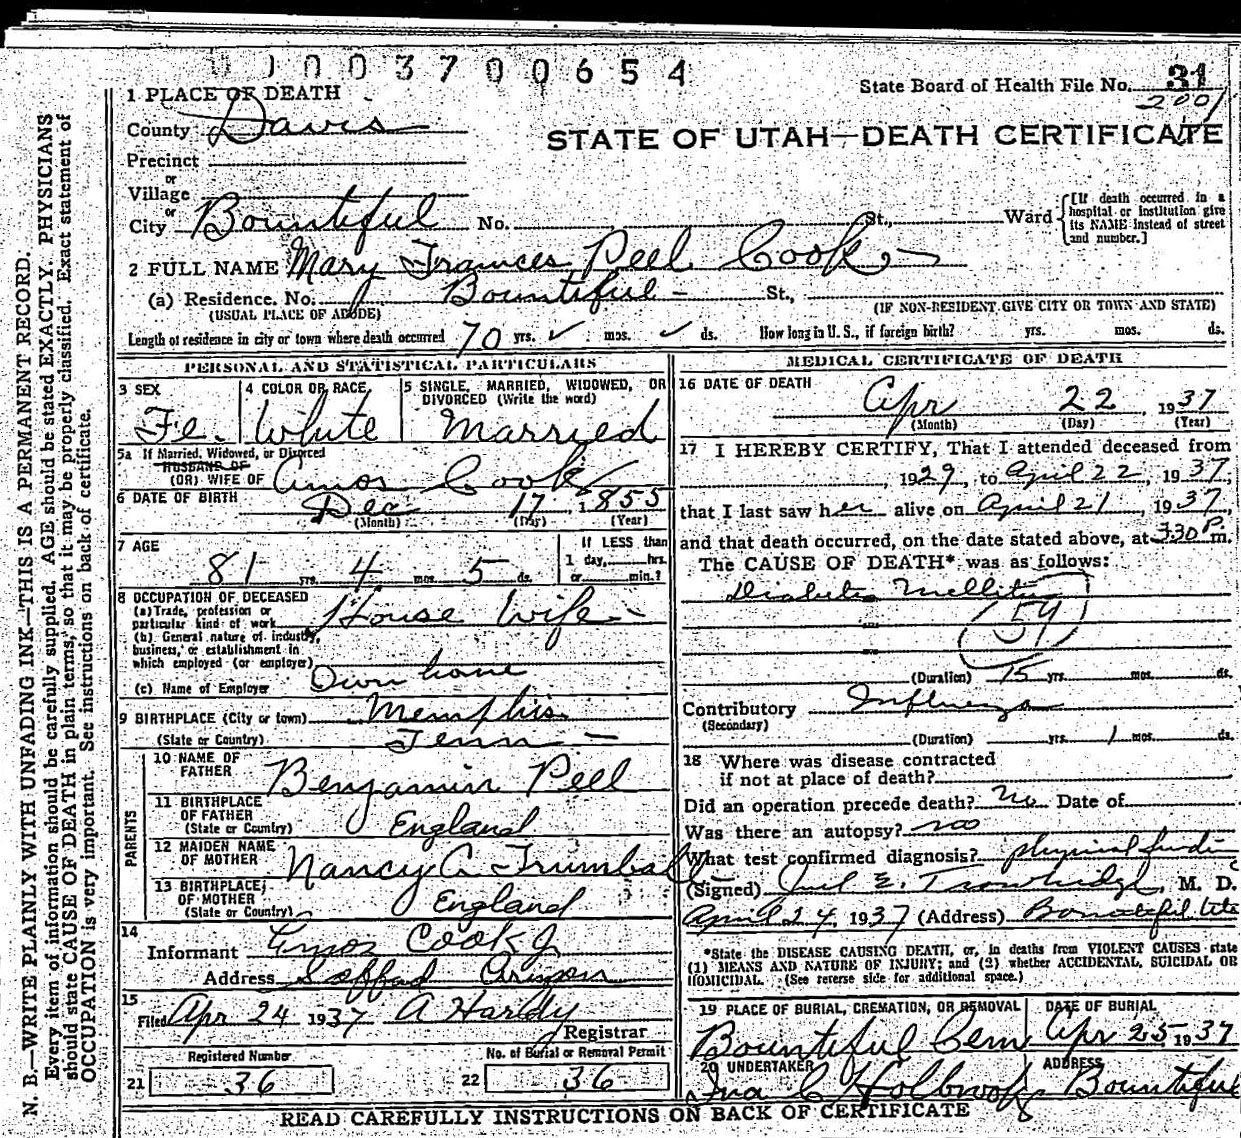 N. B.—WRITE PLAINLY WITH UNFADING INK—THIS IS A PERMANENT RECORD.
Every item of information should be carefully supplied. AGE should be stated EXACTLY. PHYSICIANS
should state CAUSE OF DEATH in plain terms, so that it may be properly classified. Exact statement of
OCCUPATION is very important. See instructions on back of certificate.
003700654
State Board of Health File No. 31
2001
STATE OF UTAH—DEATH CERTIFICATE
1 PLACE OF DEATH
County Davis
Precinct
or
Village
or
City Bountiful No. St., Ward
[If death occurred in a
hospital or institution give
its NAME instead of street
and number.]
2 FULL NAME Mary Frances Peel Cook
(a) Residence. No. Bountiful - St.,
(USUAL PLACE OF ABODE) (IF NON-RESIDENT GIVE CITY OR TOWN AND STATE)
Length of residence in city or town where death occurred 70 yrs. mos. ds. How long in U. S., if foreign birth? yrs. mos. ds.
PERSONAL AND STATISTICAL PARTICULARS
3 SEX
Fe.
4 COLOR OR RACE
White
5 SINGLE, MARRIED, WIDOWED, OR
DIVORCED (Write the word)
Married
5a If Married, Widowed, or Divorced
HUSBAND OF
(OR) WIFE OF Amos Cook
6 DATE OF BIRTH Dec 17, 1855
(Month) (Day) (Year)
7 AGE
81 yrs. 4 mos. 5 ds.
If LESS than
1 day, hrs.
or min.?
8 OCCUPATION OF DECEASED
(a) Trade, profession or
particular kind of work House Wife -
(b) General nature of industry,
business, or establishment in
which employed (or employer)
Own home
(c) Name of Employer
9 BIRTHPLACE (City or town) Memphis
(State or Country) Tenn -
PARENTS
10 NAME OF
FATHER Benjamin Peel
11 BIRTHPLACE
OF FATHER
(State or Country) England
12 MAIDEN NAME
OF MOTHER Nancy A Trumball
13 BIRTHPLACE
OF MOTHER
(State or Country) England
14
Informant Amos Cook Jr
Address Safford Arizona
15
Filed Apr 24 1937 A Hardy
Registrar
Registered Number
21 36
No. of Burial or Removal Permit
22 36
MEDICAL CERTIFICATE OF DEATH
16 DATE OF DEATH
Apr 22, 1937
(Month) (Day) (Year)
17 I HEREBY CERTIFY, That I attended deceased from
, 1929, to April 22, 1937,
that I last saw her alive on April 21, 1937,
and that death occurred, on the date stated above, at 330 P.m.
The CAUSE OF DEATH* was as follows:
Diabetes Mellitus
59
(Duration) 15 yrs. mos. ds.
Contributory Influenza
(Secondary)
(Duration) yrs. 1 mos. ds.
18 Where was disease contracted
if not at place of death?
Did an operation precede death? No Date of
Was there an autopsy? no
What test confirmed diagnosis? physical
(Signed) E. Trowbridge, M. D.
April 24, 1937 (Address) Bountiful
*State the DISEASE CAUSING DEATH, or, in deaths from VIOLENT CAUSES state
(1) MEANS AND NATURE OF INJURY; and (2) whether ACCIDENTAL, SUICIDAL OR
HOMICIDAL. (See reverse side for additional space.)
19 PLACE OF BURIAL, CREMATION, OR REMOVAL
Bountiful Cem
DATE OF BURIAL
Apr 25 1937
20 UNDERTAKER
Holbrook
ADDRESS
Bountiful
READ CAREFULLY INSTRUCTIONS ON BACK OF CERTIFICATE